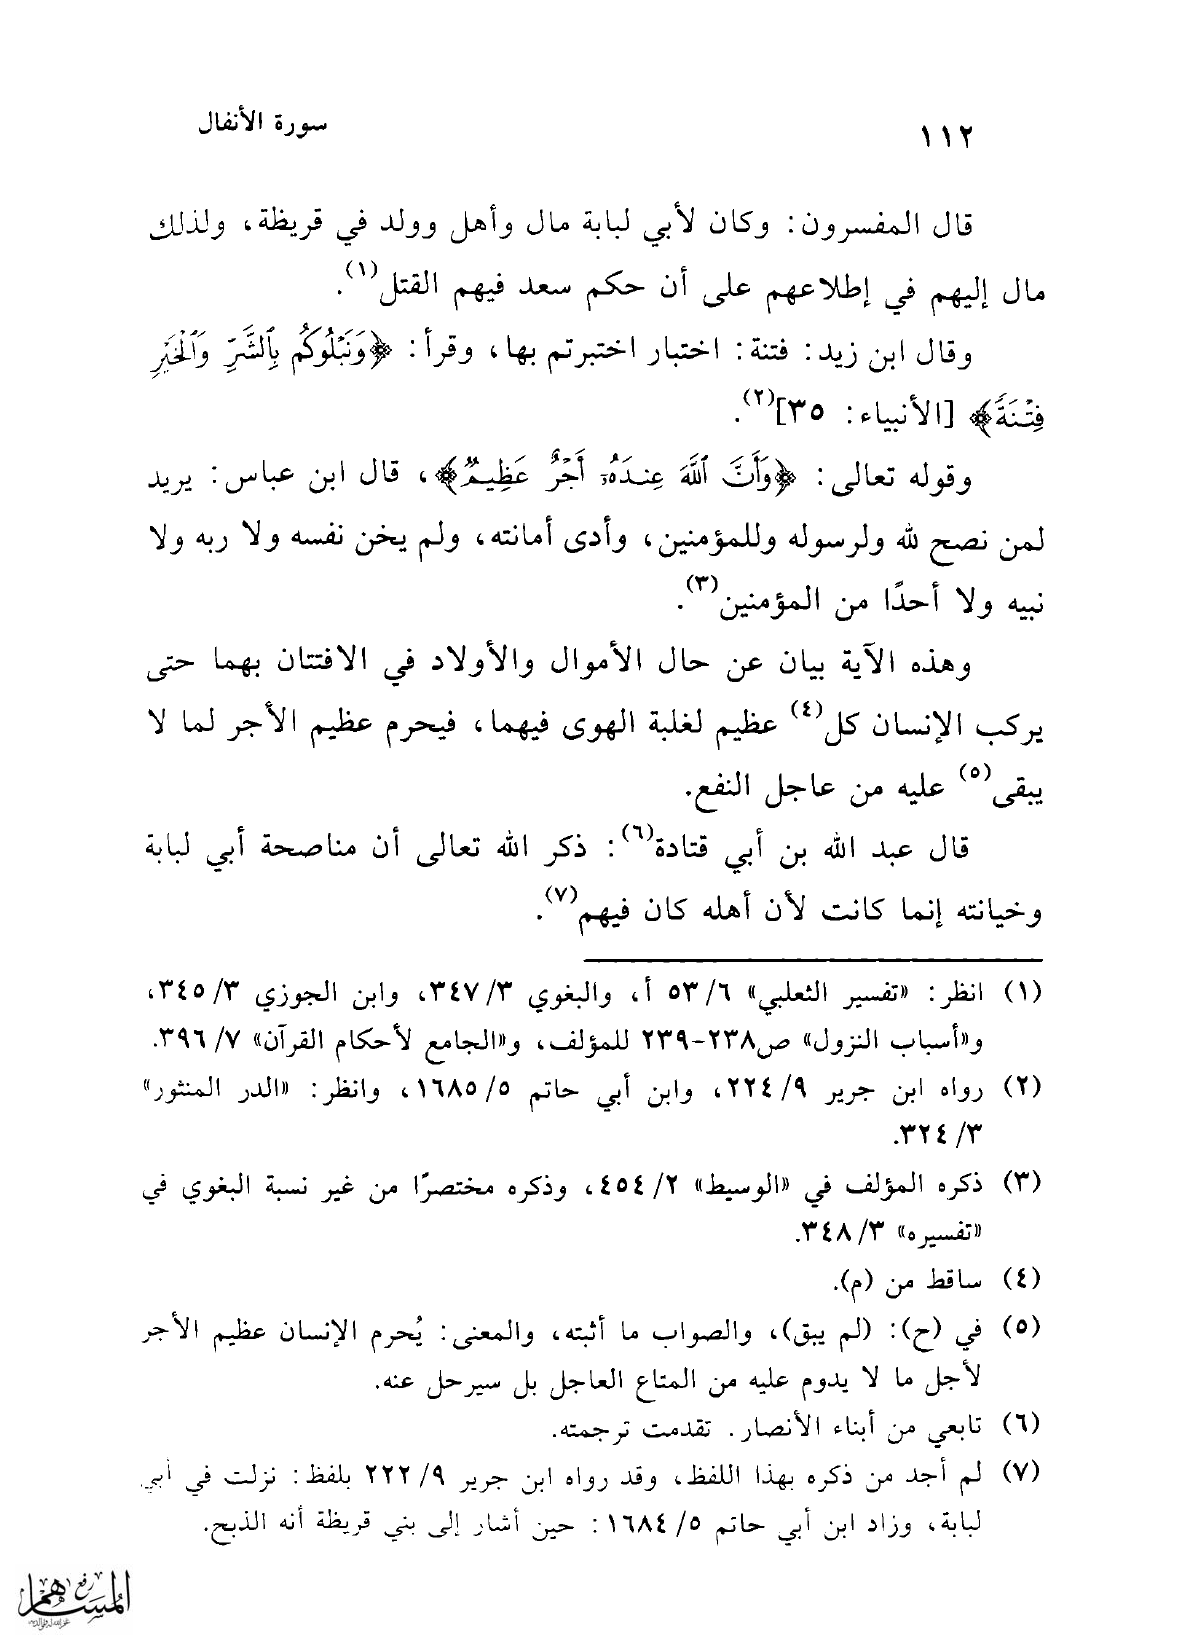 ١١٢ سورة الأنفال
قال المفسرون: وكان لأبي لبابة مال وأهل وولد في قريظة، ولذلك
مال إليهم في إطلاعهم على أن حكم سعد فيهم القتل(١).
وقال ابن زيد: فتنة: اختبار اختبرتم بها، وقرأ: ﴿وَنَبْلُوكُم بِٱلشَّرِّ وَٱلْخَيْرِ
فِتْنَةً﴾ [الأنبياء: ٣٥](٢).
وقوله تعالى: ﴿وَأَنَّ ٱللَّهَ عِندَهُۥٓ أَجْرٌ عَظِيمٌ﴾، قال ابن عباس: يريد
لمن نصح لله ولرسوله وللمؤمنين، وأدى أمانته، ولم يخن نفسه ولا ربه ولا
نبيه ولا أحدًا من المؤمنين(٣).
وهذه الآية بيان عن حال الأموال والأولاد في الافتتان بهما حتى
يركب الإنسان كل(٤) عظيم لغلبة الهوى فيهما، فيحرم عظيم الأجر لما لا
يبقى(٥) عليه من عاجل النفع.
قال عبد الله بن أبي قتادة(٦): ذكر الله تعالى أن مناصحة أبي لبابة
وخيانته إنما كانت لأن أهله كان فيهم(٧).
(١) انظر: «تفسير الثعلبي» ٦/ ٥٣ أ، والبغوي ٣/ ٣٤٧، وابن الجوزي ٣/ ٣٤٥،
و«أسباب النزول» ص٢٣٨-٢٣٩ للمؤلف، و«الجامع لأحكام القرآن» ٧/ ٣٩٦.
(٢) رواه ابن جرير ٩/ ٢٢٤، وابن أبي حاتم ٥/ ١٦٨٥، وانظر: «الدر المنثور»
٣/ ٣٢٤.
(٣) ذكره المؤلف في «الوسيط» ٢/ ٤٥٤، وذكره مختصرًا من غير نسبة البغوي في
«تفسيره» ٣/ ٣٤٨.
(٤) ساقط من (م).
(٥) في (ح): (لم يبق)، والصواب ما أثبته، والمعنى: يُحرم الإنسان عظيم الأجر
لأجل ما لا يدوم عليه من المتاع العاجل بل سيرحل عنه.
(٦) تابعي من أبناء الأنصار. تقدمت ترجمته.
(٧) لم أجد من ذكره بهذا اللفظ، وقد رواه ابن جرير ٩/ ٢٢٢ بلفظ: نزلت في أبي
لبابة، وزاد ابن أبي حاتم ٥/ ١٦٨٤: حين أشار إلى بني قريظة أنه الذبح.